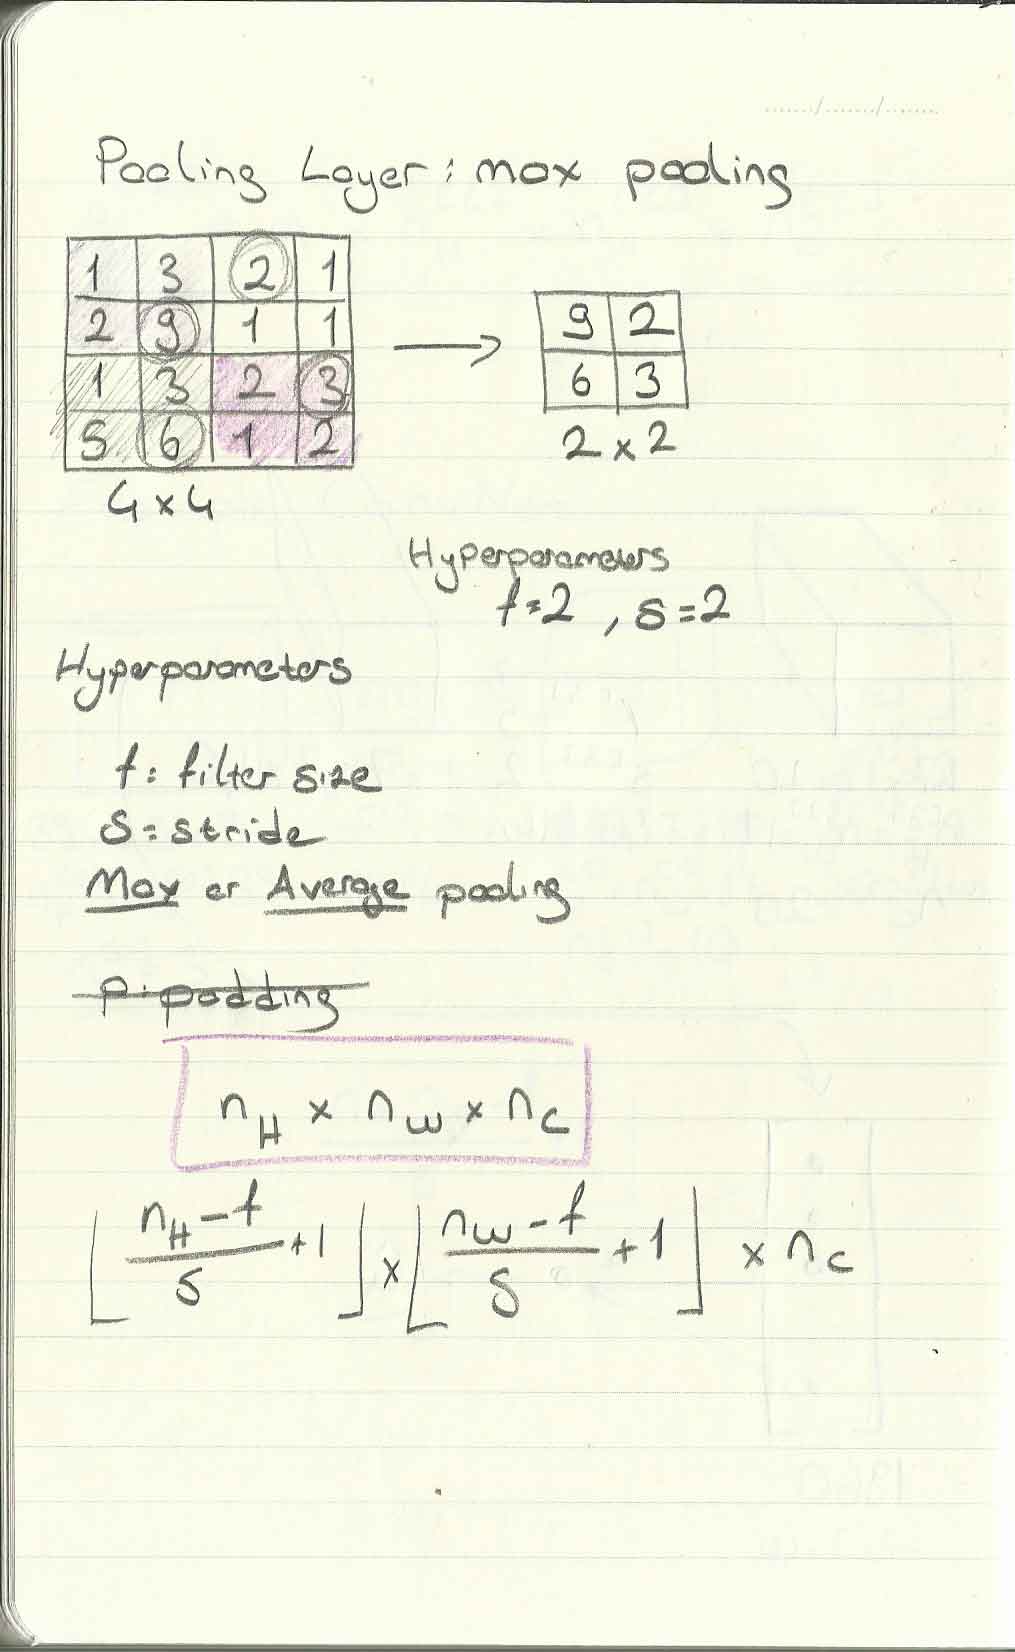 Pooling Layer : max pooling
1 3 2 1
2 9 1 1
1 3 2 3
5 6 1 2
4 x 4
9 2
6 3
2 x 2
Hyperparameters
f=2 , s=2
Hyperparameters
f: filter size
s = stride
Max or Average pooling
p: padding
n_H x n_W x n_C
⌊(n_H - f)/s + 1⌋ x ⌊(n_W - f)/s + 1⌋ x n_C